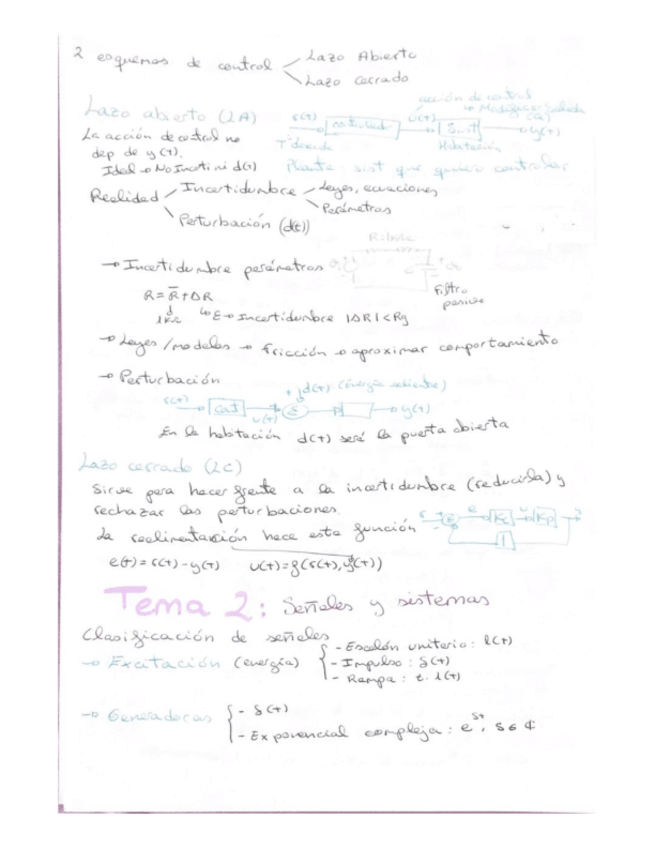 2 esquemas de control
Lazo Abierto
Lazo cerrado
Lazo abierto (LA)
acción de control
r(t) controlador u(t) Sist y(t)
Tª deseada Habitación
La acción de control no
dep de y(t).
Ideal → No Incerti ni d(t)
Planta, sist que quiero controlar
Realidad
Incertidumbre
Leyes, ecuaciones
Parámetros
Perturbación (d(t))
→ Incertidumbre parámetros
Filtro
pasivo
R = R̄ + ΔR
1kΩ ↳ Incertidumbre |ΔR| < Rg
→ Leyes/modelos → fricción → aproximar comportamiento
→ Perturbación
+ d(t)
r(t) Cat u(t) Σ y(t)
En la habitación d(t) será la puerta abierta
Lazo cerrado (LC)
Sirve para hacer frente a la incertidumbre (reducirla) y
rechazar las perturbaciones.
La realimentación hace esta función
e(t) = r(t) - y(t) u(t) = f(r(t), y(t))
Tema 2: Señales y sistemas
Clasificación de señales
→ Excitación (energía)
- Escalón unitario: 1(t)
- Impulso: δ(t)
- Rampa: t·1(t)
→ Generadoras
- δ(t)
- Exponencial compleja: e^st, s ∈ ℂ